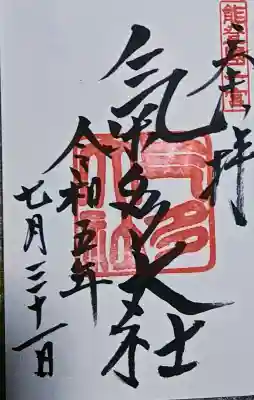 能登國一宮
奉拝
氣多大社
令和五年
七月三十一日